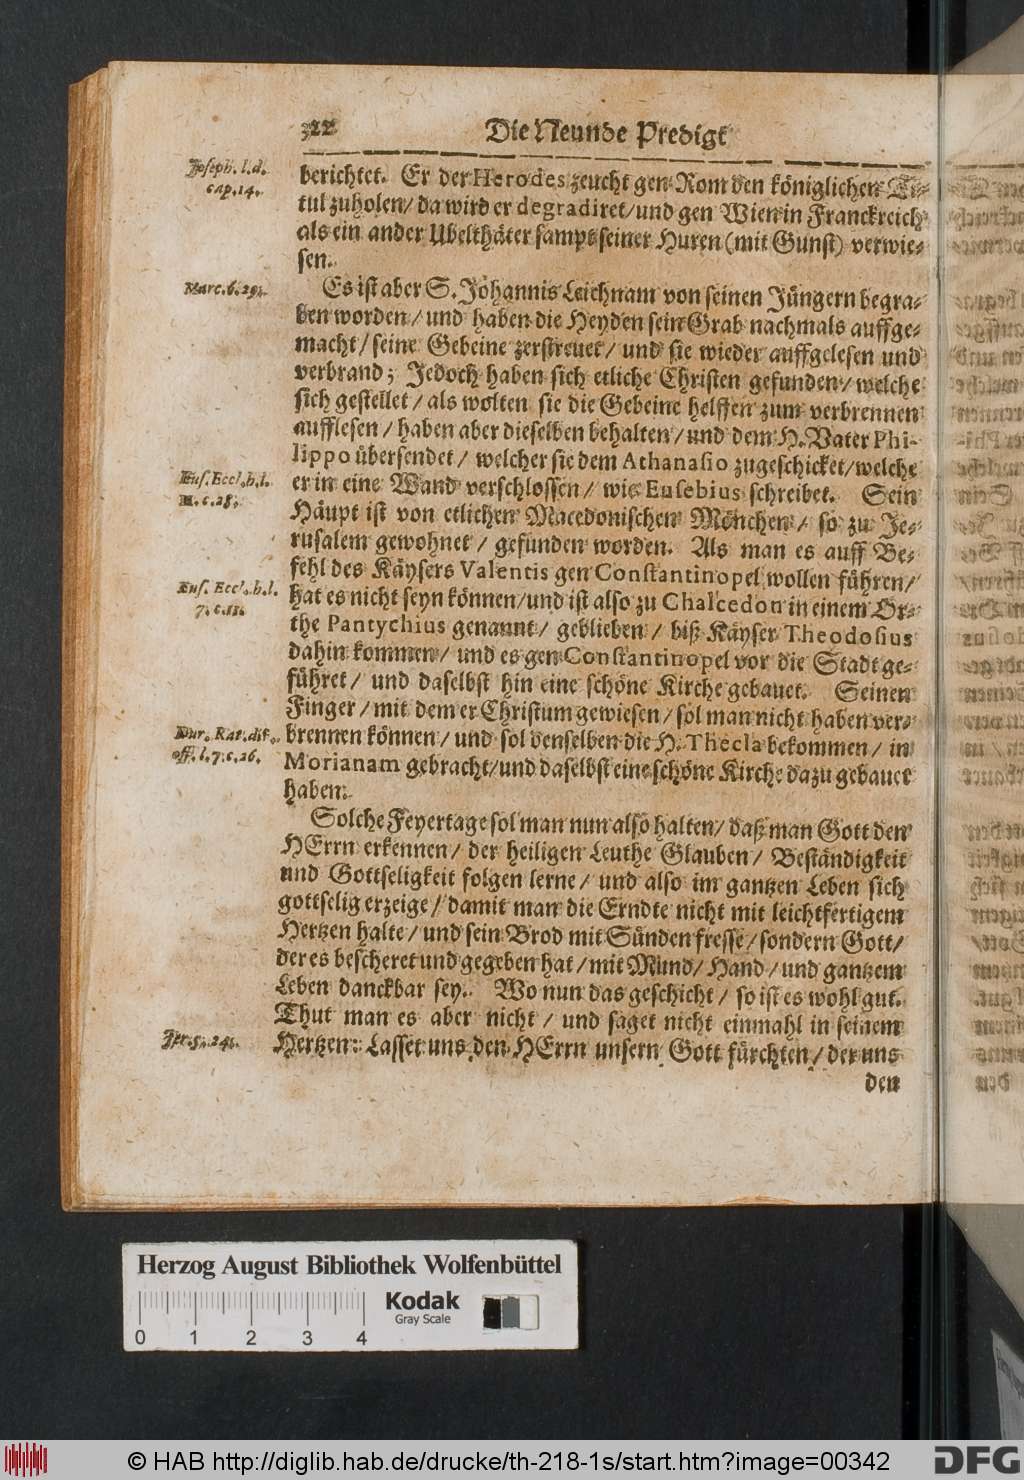 322 Die Neunde Predigt
Joseph. l. d.
cap. 14.
berichtet. Er der Herodes zeucht gen Rom den königlichen Ti-
tul zuholen/ da wird er degradiret/ und gen Wien in Franckreich
als ein ander Ubelthäter sampt seiner Huren (mit Gunst) verwie-
sen.
Marc. 6. 29.
Es ist aber S. Johannis Leichnam von seinen Jüngern begra-
ben worden/ und haben die Heyden sein Grab nachmals auffge-
macht/ seine Gebeine zerstreuet/ und sie wieder auffgelesen und
verbrand; Jedoch haben sich etliche Christen gefunden/ welche
sich gestellet/ als wolten sie die Gebeine helffen zum verbrennen
aufflesen/ haben aber dieselben behalten/ und dem H. Vater Phi-
lippo übersendet/ welcher sie dem Athanasio zugeschicket/ welche
Eus. Eccl. h. l.
11. c. 28.
er in eine Wand verschlossen/ wie Eusebius schreibet. Sein
Häupt ist von etlichen Macedonischen Mönchen/ so zu Je-
rusalem gewohnet/ gefunden worden. Als man es auff Be-
fehl des Käysers Valentis gen Constantinopel wollen führen/
Eus. Eccl. h. l.
7. c. 21.
hat es nicht seyn können/ und ist also zu Chalcedon in einem Or-
the Pantychius genannt/ geblieben/ biß Käyser Theodosius
dahin kommen/ und es gen Constantinopel vor die Stadt ge-
führet/ und daselbst hin eine schöne Kirche gebauet. Seinen
Finger/ mit dem er Christum gewiesen/ sol man nicht haben ver-
Dur. Rat. dif.
off. l. 7. c. 26.
brennen können/ und sol denselben die H. Thecla bekommen/ in
Morianam gebracht/ und daselbst eine schöne Kirche dazu gebauet
haben.
Solche Feyertage sol man nun also halten/ daß man Gott den
HErrn erkennen/ der heiligen Leuthe Glauben/ Beständigkeit
und Gottseligkeit folgen lerne/ und also im gantzen Leben sich
gottselig erzeige/ damit man die Erndte nicht mit leichtfertigem
Hertzen halte/ und sein Brod mit Sünden fresse/ sondern Gott/
der es bescheret und gegeben hat/ mit Mund/ Hand/ und gantzem
Leben danckbar sey. Wo nun das geschicht/ so ist es wohl gut.
Thut man es aber nicht/ und saget nicht einmahl in seinem
Jer. 5. 24.
Hertzen: Lasset uns den HErrn unsern Gott fürchten/ der uns
den
Herzog August Bibliothek Wolfenbüttel
Kodak
Gray Scale
0 1 2 3 4
© HAB http://diglib.hab.de/drucke/th-218-1s/start.htm?image=00342
DFG